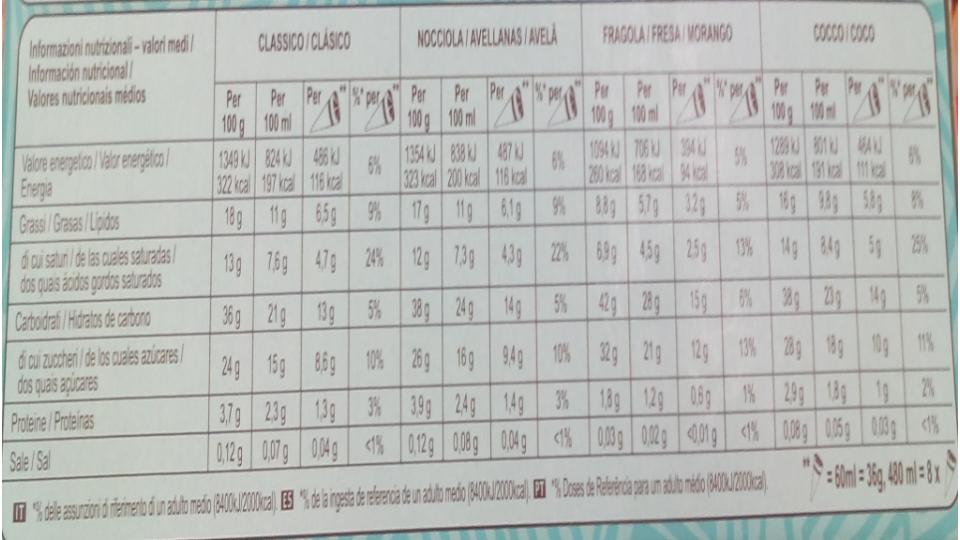 Informazioni nutrizionali – valori medi / CLASSICO / CLÁSICO NOCCIOLA / AVELLANAS / AVELÃ FRAGOLA / FRESA / MORANGO COCCO / COCO
Información nutricional /
Valores nutricionais médios
Per 100 g Per 100 ml Per ** %* per ** Per 100 g Per 100 ml Per ** %* per ** Per 100 g Per 100 ml Per ** %* per ** Per 100 g Per 100 ml Per ** %* per **
Valore energetico / Valor energético / 1349 kJ 824 kJ 486 kJ 6% 1354 kJ 838 kJ 487 kJ 6% 1094 kJ 706 kJ 394 kJ 5% 1289 kJ 801 kJ 464 kJ 6%
Energia 322 kcal 197 kcal 116 kcal 323 kcal 200 kcal 116 kcal 260 kcal 168 kcal 94 kcal 308 kcal 191 kcal 111 kcal
Grassi / Grasas / Lípidos 18 g 11 g 6,5 g 9% 17 g 11 g 6,1 g 9% 8,8 g 5,7 g 3,2 g 5% 16 g 9,8 g 5,8 g 8%
di cui saturi / de las cuales saturadas / 13 g 7,6 g 4,7 g 24% 12 g 7,3 g 4,3 g 22% 6,9 g 4,5 g 2,5 g 13% 14 g 8,4 g 5 g 25%
dos quais ácidos gordos saturados
Carboidrati / Hidratos de carbono 36 g 21 g 13 g 5% 38 g 24 g 14 g 5% 42 g 28 g 15 g 6% 38 g 23 g 14 g 5%
di cui zuccheri / de los cuales azúcares / 24 g 15 g 8,6 g 10% 26 g 16 g 9,4 g 10% 32 g 21 g 12 g 13% 28 g 18 g 10 g 11%
dos quais açúcares
Proteine / Proteínas 3,7 g 2,3 g 1,3 g 3% 3,9 g 2,4 g 1,4 g 3% 1,8 g 1,2 g 0,6 g 1% 2,9 g 1,8 g 1 g 2%
Sale / Sal 0,12 g 0,07 g 0,04 g <1% 0,12 g 0,08 g 0,04 g <1% 0,03 g 0,02 g <0,01 g <1% 0,08 g 0,05 g 0,03 g <1%
IT *% delle assunzioni di riferimento di un adulto medio (8400kJ/2000kcal). ES *% de la ingesta de referencia de un adulto medio (8400kJ/2000kcal). PT *% Doses de Referência para um adulto médio (8400kJ/2000kcal).
** = 60ml = 36g, 480 ml = 8 x